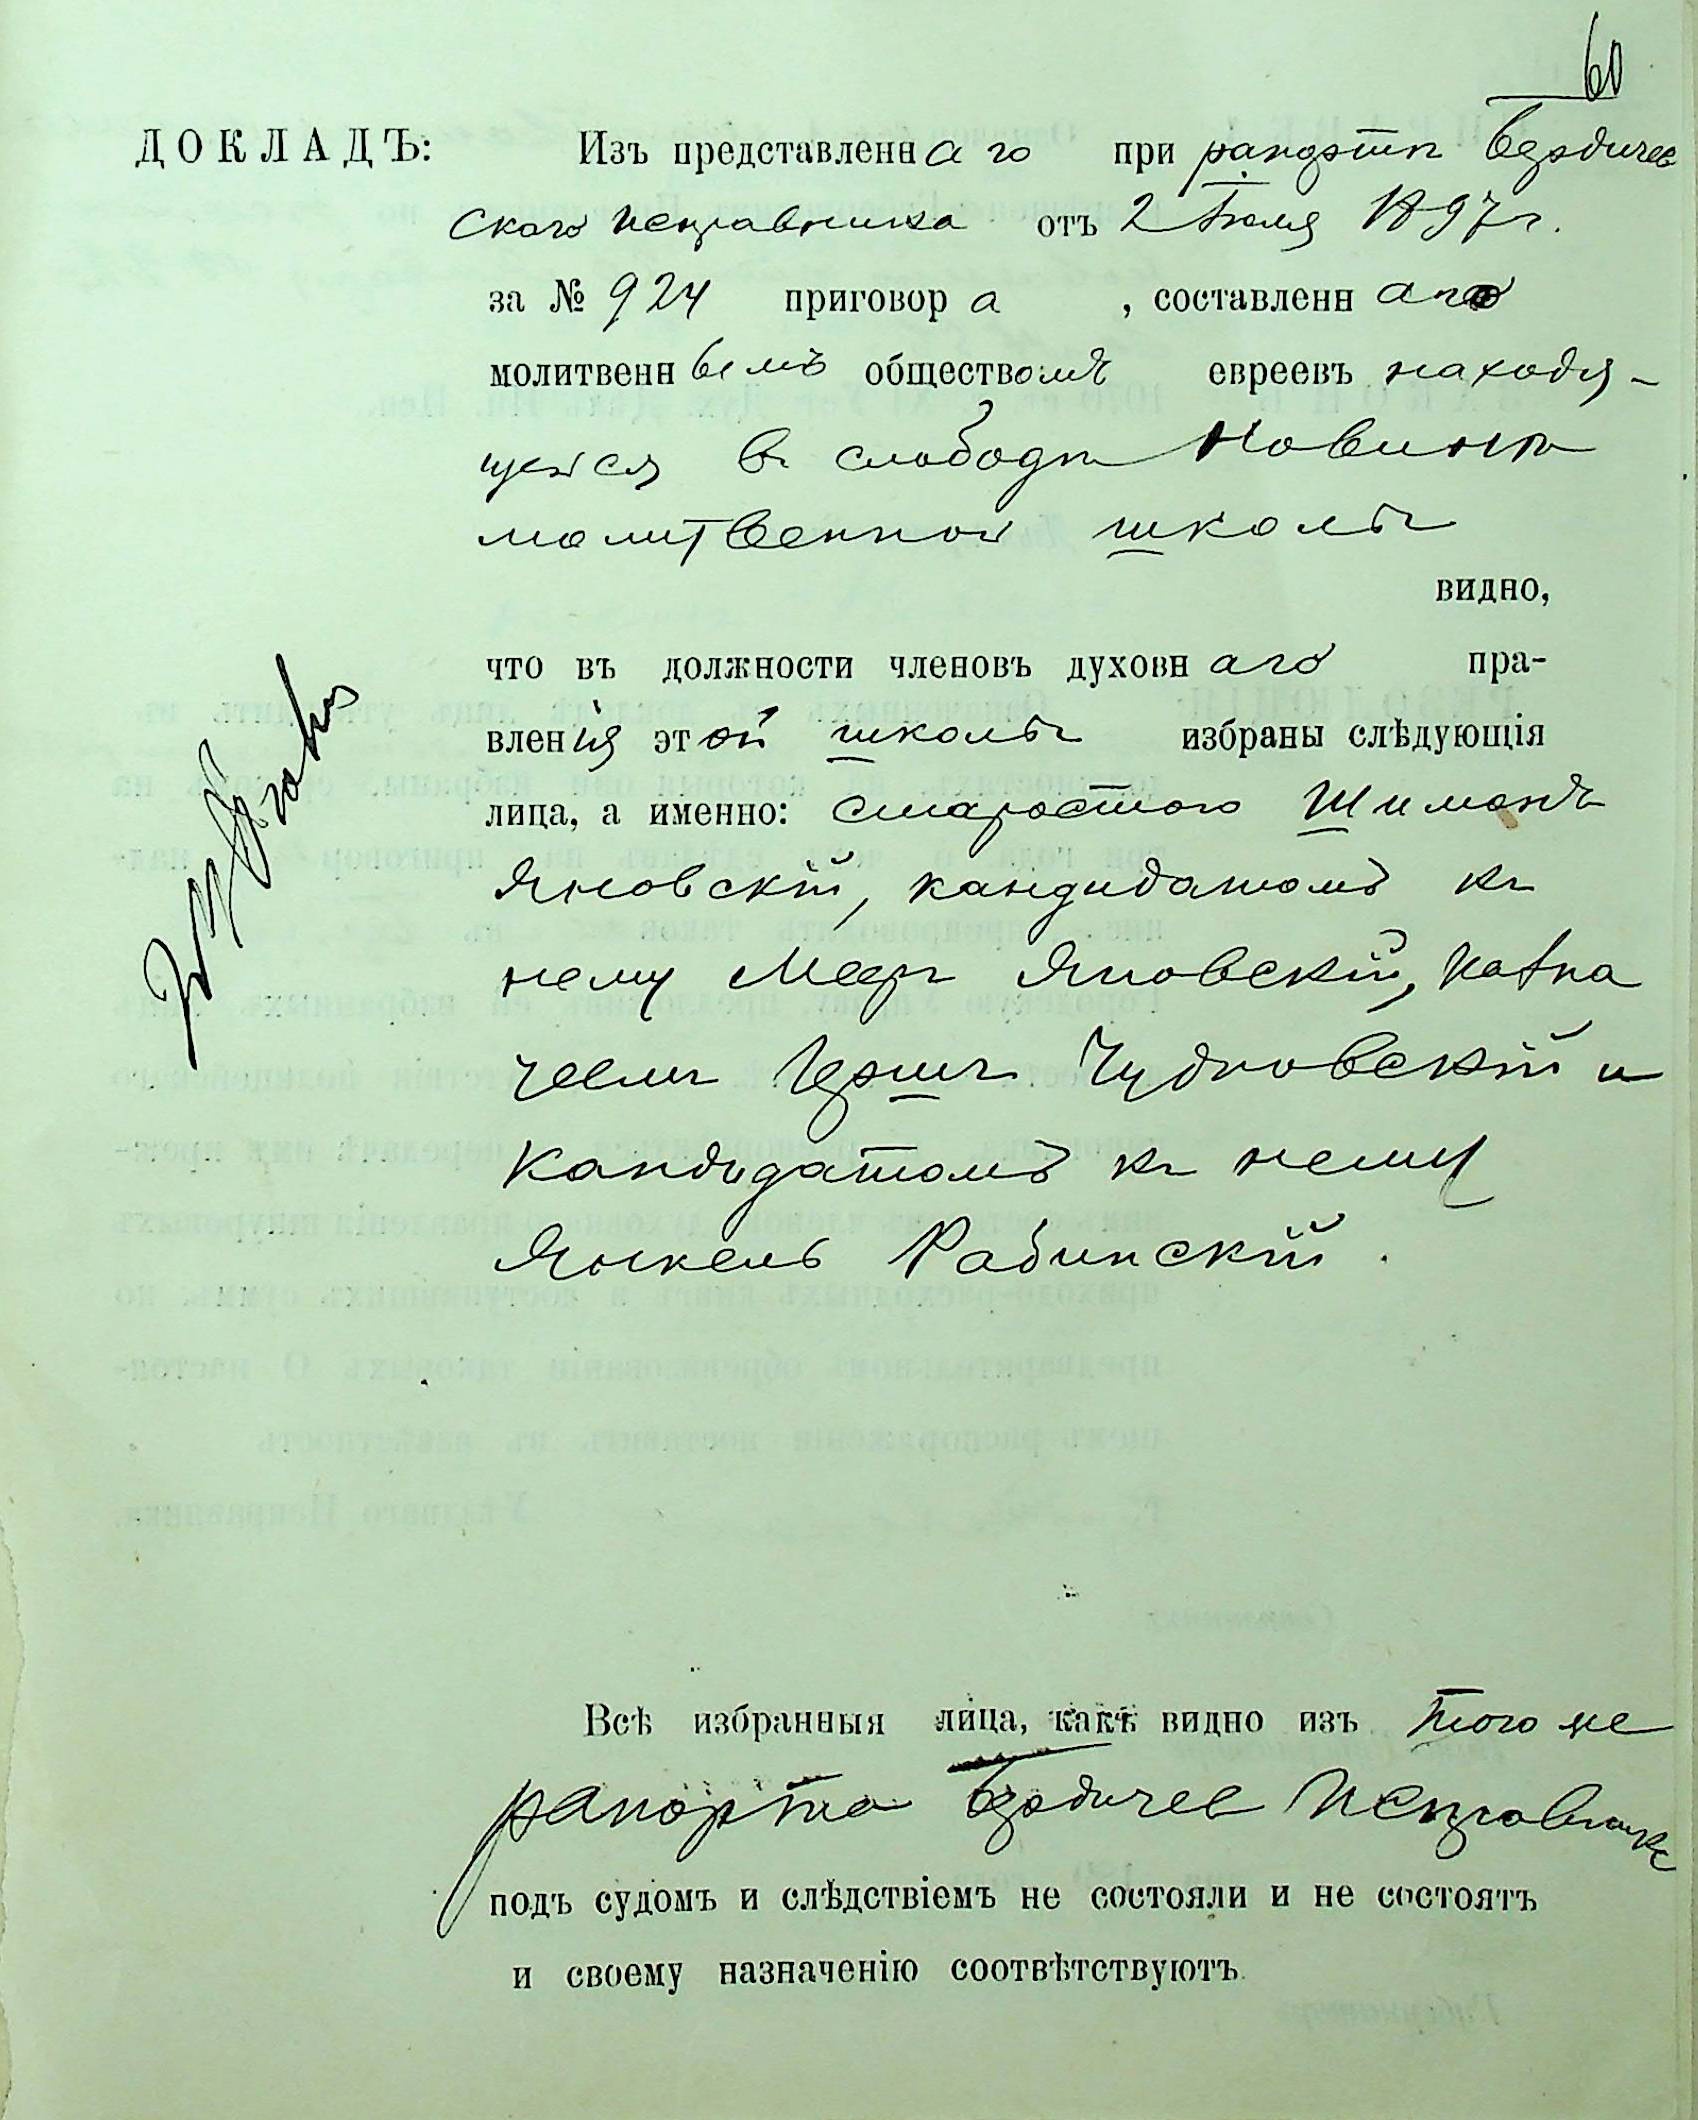 60
ДОКЛАДЪ: Изъ представленнаго при рапортѣ Бердичев
скаго Исправника отъ 2 Іюля 1897 г.
за № 924 приговора, составленнаго
молитвеннымъ обществомъ евреевъ находя-
щейся въ слободѣ
молитвенной школы
видно,
что въ должности членовъ духовнаго пра-
вленія этой школы избраны слѣдующія
лица, а именно: старостою Шимонъ
Яновскій, кандидатомъ къ
нему Мееръ Яновскій, казна
чеемъ Гершъ Чудновскій и
кандидатомъ къ нему
Янкель Рабинскій.
Всѣ избранныя лица, какъ видно изъ того же
рапорта Бердичев Исправника
подъ судомъ и слѣдствіемъ не состояли и не состоятъ
и своему назначенію соотвѣтствуютъ.